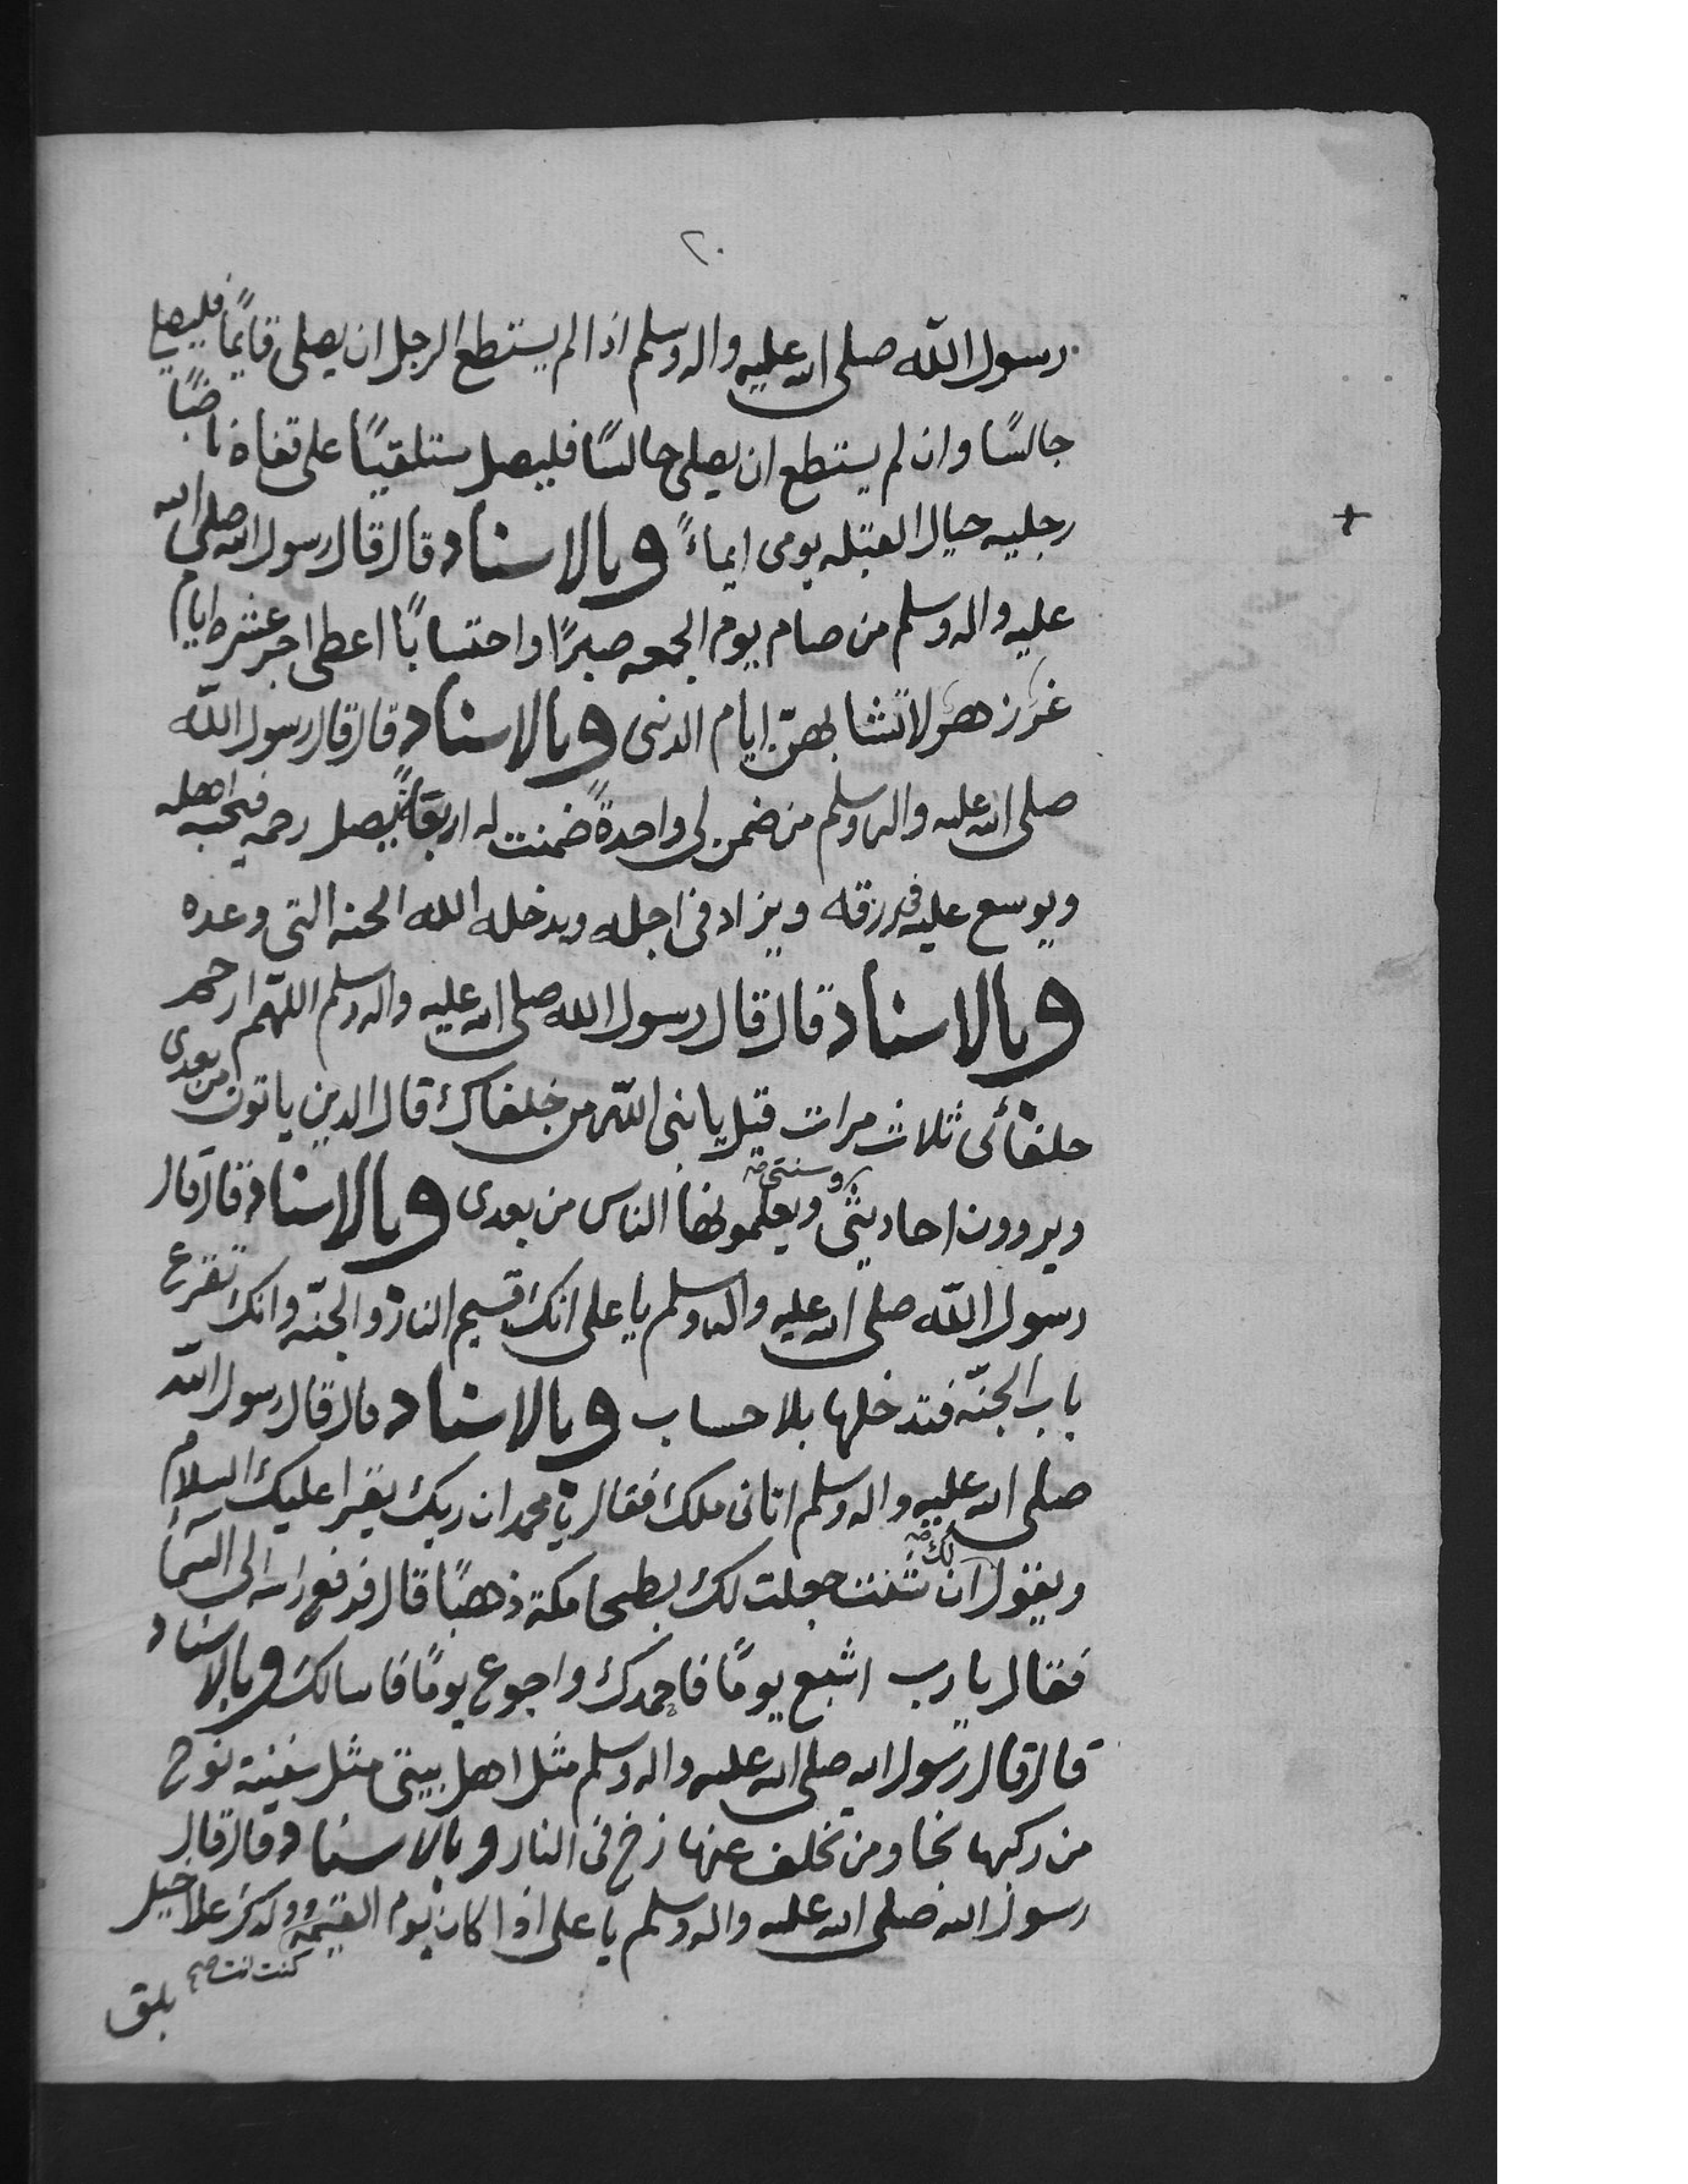 ٢٠
رسول الله صلى الله عليه واله وسلم اذا لم يستطع الرجل ان يصلى قايمًا فليصلي
جالسًا وان لم يستطع ان يصلى جالسًا فليصل مستلقيًا على قفاه ناصبًا
رجليه حيال القبله يومى ايماءً وبالاسناد قال قال رسول الله صلى الله
عليه واله وسلم من صام يوم الجمعه صبرًا واحتسابًا اعطى اجر عشره ايام
غرر زهر لا تشابهنّ ايام الدنى وبالاسناد قال قال رسول الله
صلى الله عليه واله وسلم من ضمن لى واحدةً ضمنت له اربعًا يصل رحمه فيحبه اهله
ويوسع عليه فى رزقه ويزاد فى اجله ويدخله الله الجنه التى وعده
وبالاسناد قال قال رسول الله صلى الله عليه واله وسلم اللهم ارحم
خلفائى ثلاث مرات قيل يا نبى الله من خلفاك قال الذين ياتون من بعدى
ويروون احاديثى وسنتى ويعلمونها الناس من بعدى وبالاسناد قال قال
رسول الله صلى الله عليه واله وسلم يا على انك قسيم النار والجنّه وانك تقرع
باب الجنّه فتدخلها بلا حساب وبالاسناد قال قال رسول الله
صلى الله عليه واله وسلم اتانى ملك فقال يا محمد ان ربك يقرا عليك السلام
ويقول لك ان شئت جعلت لك بطحا مكة ذهبًا قال فرفع راسه الى السماء
فقال يا رب اشبع يومًا فاحمدك واجوع يومًا فاسالك وبالاسناد
قال قال رسول الله صلى الله عليه واله وسلم مثل اهل بيتى مثل سفينة نوح
من ركبها نجا ومن تخلف عنها زخ فى النار وبالاسناد قال قال
رسول الله صلى الله عليه واله وسلم يا على اذا كان يوم القيمه كنت انت وولدك على خيل
بلق